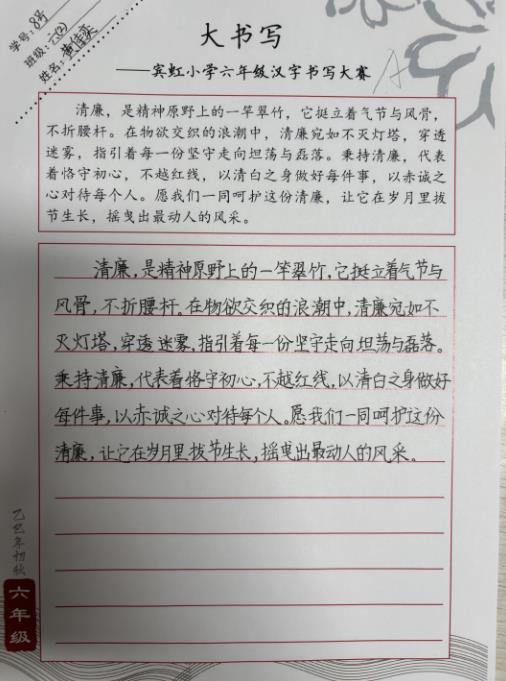 学号：8号
班级：六(2)
姓名：黄佳奕
大书写
——宾虹小学六年级汉字书写大赛
A
清廉，是精神原野上的一竿翠竹，它挺立着气节与风骨，
不折腰杆。在物欲交织的浪潮中，清廉宛如不灭灯塔，穿透
迷雾，指引着每一份坚守走向坦荡与磊落。秉持清廉，代表
着恪守初心，不越红线，以清白之身做好每件事，以赤诚之
心对待每个人。愿我们一同呵护这份清廉，让它在岁月里拔
节生长，摇曳出最动人的风采。
清廉，是精神原野上的一竿翠竹，它挺立着气节与
风骨，不折腰杆。在物欲交织的浪潮中，清廉宛如不
灭灯塔，穿透迷雾，指引着每一份坚守走向坦荡与磊落。
秉持清廉，代表着恪守初心，不越红线，以清白之身做好
每件事，以赤诚之心对待每个人。愿我们一同呵护这份
清廉，让它在岁月里拔节生长，摇曳出最动人的风采。
乙巳年初秋
六年级